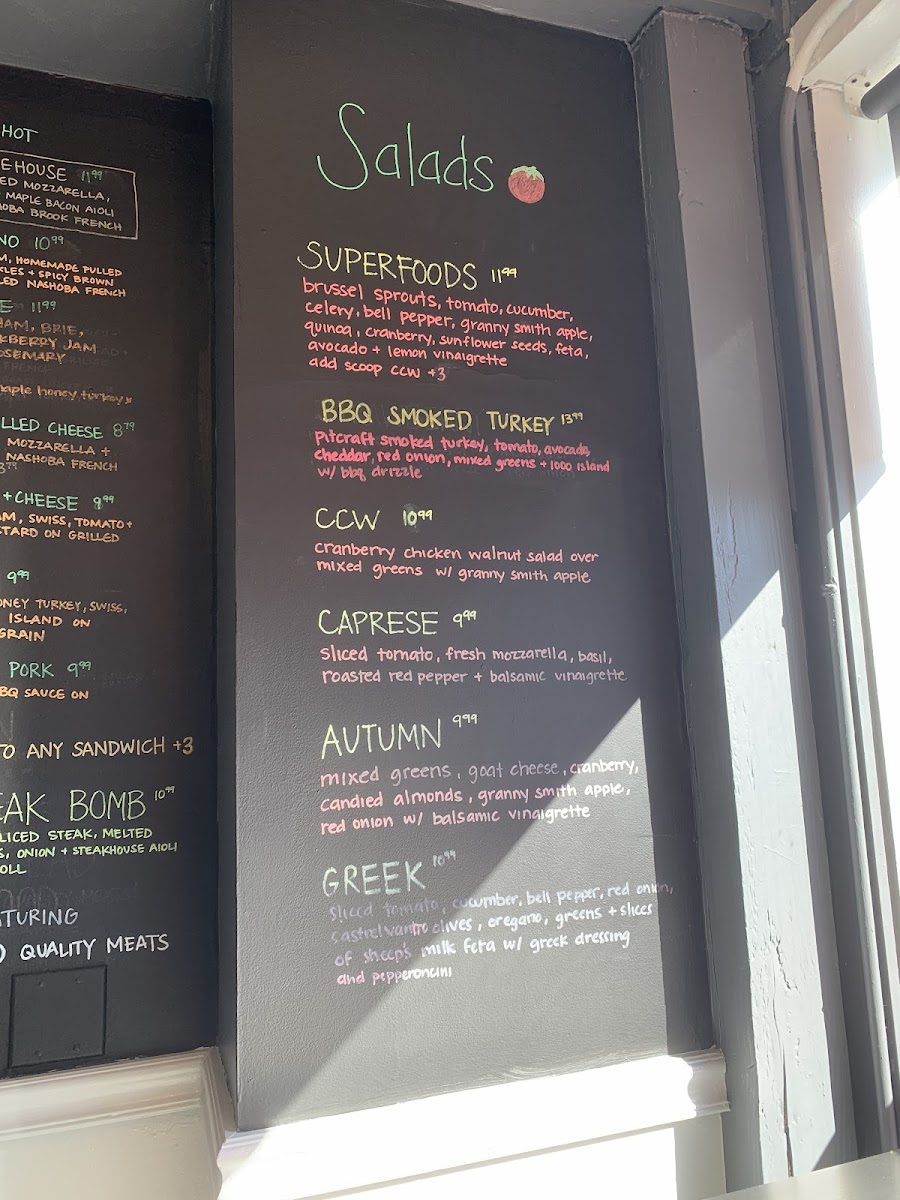 HOT
EHOUSE 11.99
ED MOZZARELLA,
MAPLE BACON AIOLI
HOBA BROOK FRENCH
NO 10.99
M, HOMEMADE PULLED
KLES + SPICY BROWN
LED NASHOBA FRENCH
E 11.99
HAM, BRIE,
KBERRY JAM
OSEMARY
maple honey turkey
LLED CHEESE 8.79
MOZZARELLA +
NASHOBA FRENCH
+ CHEESE 9.99
AM, SWISS, TOMATO +
TARD ON GRILLED
9.99
ONEY TURKEY, SWISS,
ISLAND ON
GRAIN
PORK 9.99
BQ SAUCE ON
TO ANY SANDWICH +3
EAK BOMB 10.99
LICED STEAK, MELTED
S, ONION + STEAKHOUSE AIOLI
OLL
ATURING
QUALITY MEATS
Salads
SUPERFOODS 11.99
brussel sprouts, tomato, cucumber,
celery, bell pepper, granny smith apple,
quinoa, cranberry, sunflower seeds, feta,
avocado + lemon vinaigrette
add scoop CCW +3
BBQ SMOKED TURKEY 13.99
pitcraft smoked turkey, tomato, avocado,
cheddar, red onion, mixed greens + 1000 island
w/ bbq drizzle
CCW 10.99
cranberry chicken walnut salad over
mixed greens w/ granny smith apple
CAPRESE 9.99
sliced tomato, fresh mozzarella, basil,
roasted red pepper + balsamic vinaigrette
AUTUMN 9.99
mixed greens, goat cheese, cranberry,
candied almonds, granny smith apple,
red onion w/ balsamic vinaigrette
GREEK 10.99
sliced tomato, cucumber, bell pepper, red onion,
castrelvantro olives, oregano, greens + slices
of sheep's milk feta w/ greek dressing
and pepperoncini